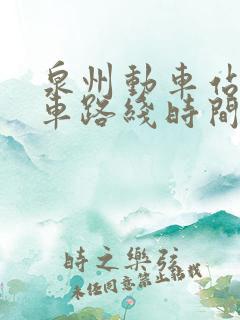 泉州動車佔
車路綫時間
時之樂弦
未经同意禁止转载